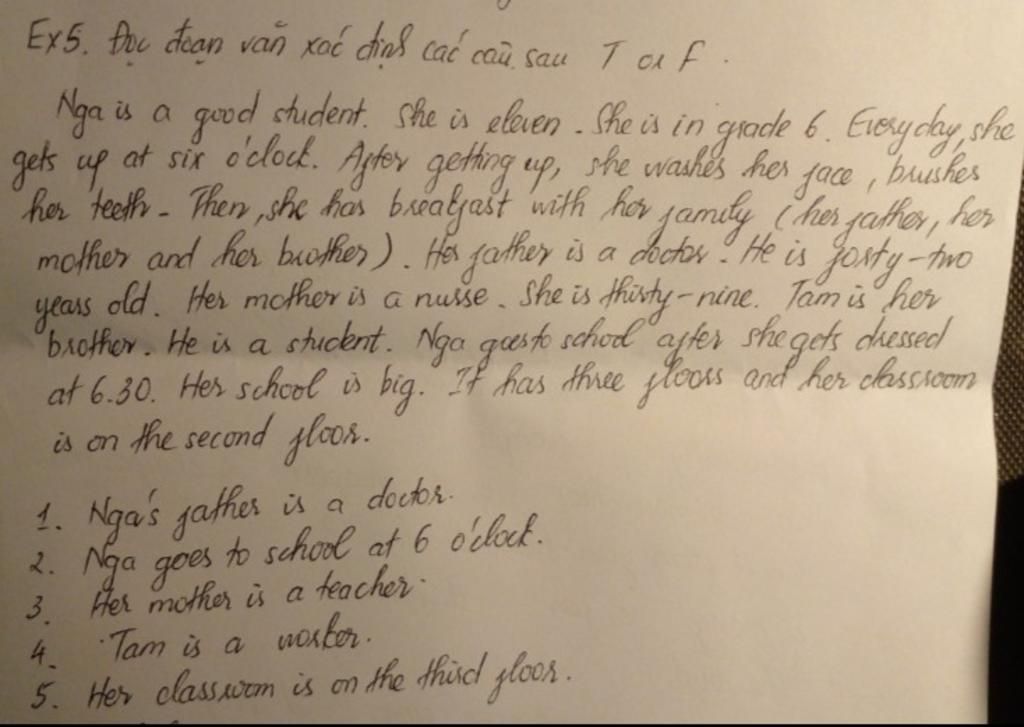 Ex5. Đọc đoạn văn xác định các câu sau T or F.
Nga is a good student. She is eleven. She is in grade 6. Everyday, she
gets up at six o'clock. After getting up, she washes her face, brushes
her teeth. Then, she has breakfast with her family (her father, her
mother and her brother). Her father is a doctor. He is forty-two
years old. Her mother is a nurse. She is thirty-nine. Tam is her
brother. He is a student. Nga goes to school after she gets dressed
at 6.30. Her school is big. It has three floors and her classroom
is on the second floor.
1. Nga's father is a doctor.
2. Nga goes to school at 6 o'clock.
3. Her mother is a teacher.
4. Tam is a worker.
5. Her classroom is on the third floor.